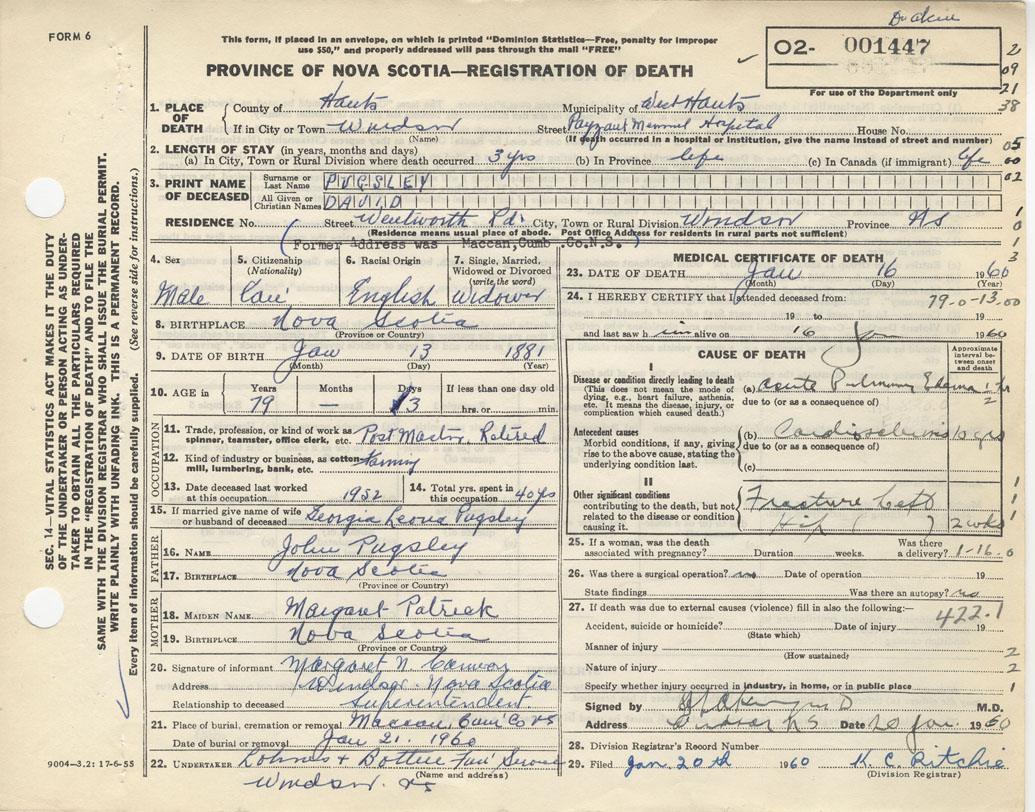 Dr akin
FORM 6
This form, if placed in an envelope, on which is printed "Dominion Statistics—Free, penalty for improper
use $50," and properly addressed will pass through the mail "FREE"
02- 001447
PROVINCE OF NOVA SCOTIA—REGISTRATION OF DEATH
For use of the Department only
2
09
21
38
05
00
02
1. PLACE OF DEATH County of Hants Municipality of West Hants
If in City or Town Windsor Street Payzant Memorial Hospital House No.
(Name) (If death occurred in a hospital or institution, give the name instead of street and number)
2. LENGTH OF STAY (in years, months and days)
(a) In City, Town or Rural Division where death occurred 3 yrs (b) In Province life (c) In Canada (if immigrant) life
3. PRINT NAME OF DECEASED Surname or Last Name PUGSLEY
All Given or Christian Names DAVID
RESIDENCE No. Street Wentworth Rd. City, Town or Rural Division Windsor Province NS
(Residence means usual place of abode. Post Office Address for residents in rural parts not sufficient)
(Former Address was Maccan,Cumb.Co.N.S.)
1
0
1
3
4. Sex Male
5. Citizenship (Nationality) Can
6. Racial Origin English
7. Single, Married, Widowed or Divorced (write the word) Widower
8. BIRTHPLACE Nova Scotia
(Province or Country)
9. DATE OF BIRTH Jan 13 1881
(Month) (Day) (Year)
10. AGE in Years 79 Months — Days 3 If less than one day old hrs. or min.
OCCUPATION
11. Trade, profession, or kind of work as spinner, teamster, office clerk, etc. Post Master, Retired
12. Kind of industry or business, as cotton mill, lumbering, bank, etc.
13. Date deceased last worked at this occupation 1952
14. Total yrs. spent in this occupation 40 yrs
15. If married give name of wife or husband of deceased Georgia Leona Pugsley
FATHER
16. NAME John Pugsley
17. BIRTHPLACE Nova Scotia
(Province or Country)
MOTHER
18. MAIDEN NAME Margaret Patrick
19. BIRTHPLACE Nova Scotia
(Province or Country)
20. Signature of informant Margaret N.
Address Windsor Nova Scotia
Relationship to deceased Superintendent
21. Place of burial, cremation or removal Maccan, Cum' Co NS
Date of burial or removal Jan 21. 1960
22. UNDERTAKER Lohnes + Fun' Service
(Name and address)
Windsor. NS
MEDICAL CERTIFICATE OF DEATH
23. DATE OF DEATH Jan 16 1960
(Month) (Day) (Year)
24. I HEREBY CERTIFY that I attended deceased from: 79-0-13.00
19 to 19
and last saw h im alive on 16 Jan 1960
CAUSE OF DEATH
Approximate interval between onset and death
I
Disease or condition directly leading to death
(This does not mean the mode of dying, e.g., heart failure, asthenia, etc. It means the disease, injury, or complication which caused death.)
(a) Acute Pulmonary Edema 1 hr
due to (or as a consequence of) 2
Antecedent causes
Morbid conditions, if any, giving rise to the above cause, stating the underlying condition last.
(b) Cardiosclerosis 10 yrs
due to (or as a consequence of)
(c)
II
Other significant conditions contributing to the death, but not related to the disease or condition causing it.
Fracture Left
Hip ( ) 2 wks
1
1
1
25. If a woman, was the death associated with pregnancy? Duration weeks. Was there a delivery? 1-16.0
26. Was there a surgical operation? no Date of operation 19
State findings Was there an autopsy? no
27. If death was due to external causes (violence) fill in also the following:— 422.1
Accident, suicide or homicide? Date of injury 19
(State which)
Manner of injury 2
(How sustained)
Nature of injury 2
Specify whether injury occurred in industry, in home, or in public place 1
Signed by M.D.
Address Windsor NS Date 20 Jan. 1960
28. Division Registrar's Record Number
29. Filed Jan. 20th 1960 K. C. Ritchie
(Division Registrar)
SEC. 14—VITAL STATISTICS ACT MAKES IT THE DUTY
OF THE UNDERTAKER OR PERSON ACTING AS UNDER-
TAKER TO OBTAIN ALL THE PARTICULARS REQUIRED
IN THE "REGISTRATION OF DEATH" AND TO FILE THE
SAME WITH THE DIVISION REGISTRAR WHO SHALL ISSUE THE BURIAL PERMIT.
WRITE PLAINLY WITH UNFADING INK. THIS IS A PERMANENT RECORD.
Every item of information should be carefully supplied. (See reverse side for instructions.)
9004—3.2: 17-6-55